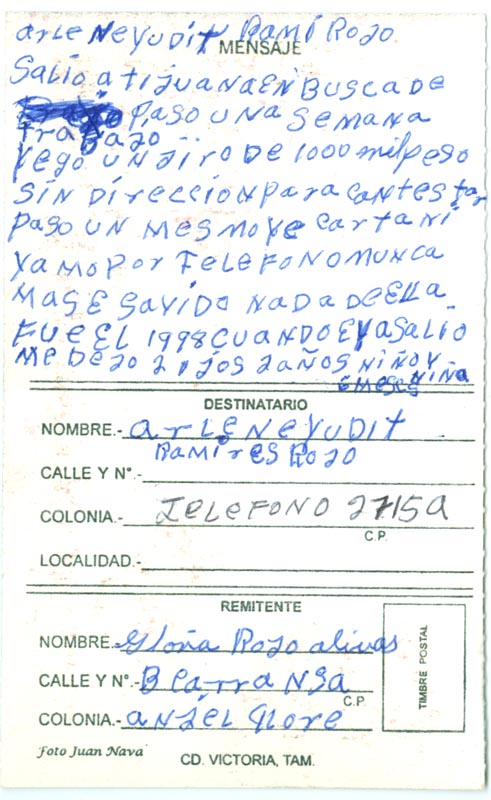 arLeNeYUDit RamiRozo
MENSAJE
SaLio atijuanaEN BUSCaDe
PASO UNa SemaNa
traBaJO
YegO UN JirO DE 1000 milpeso
SiN DirecciON para CaNtestar
paso UN mesmoYe CartaNi
YamOpOr TeLeFONOMUNCa
MaSE SaVidO NaDa DeELLa
FUeEL 1998 CUANDO EYaSaLiO
MeDeJO 2 iJOS 2aÑOS NiÑO Y
6 meses NiÑa
DESTINATARIO
NOMBRE.- arLeNeYUDit
RamireS ROZO
CALLE Y N°.-
COLONIA.- TeLeFONO 27159
C.P.
LOCALIDAD.-
REMITENTE
NOMBRE.- gLOria ROZO alivas
CALLE Y N°.- BCarraNSa
C.P.
COLONIA.- aNJeL FLOre
TIMBRE POSTAL
Foto Juan Nava
CD. VICTORIA, TAM.